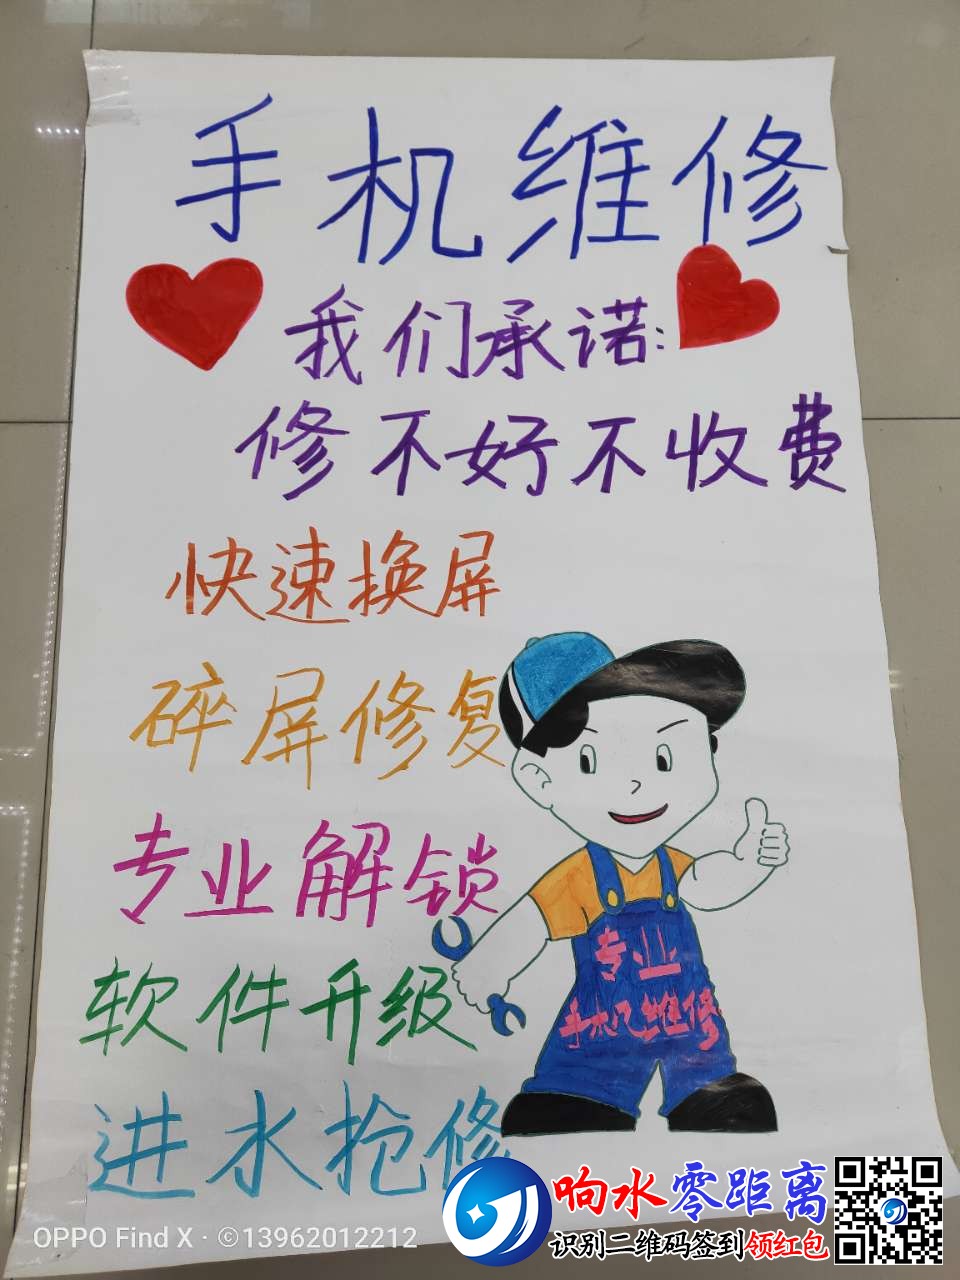 手机维修
我们承诺:
修不好不收费
快速换屏
碎屏修复
专业解锁
软件升级
进水抢修
专业
手机维修
响水零距离
识别二维码签到领红包
OPPO Find X · ©13962012212